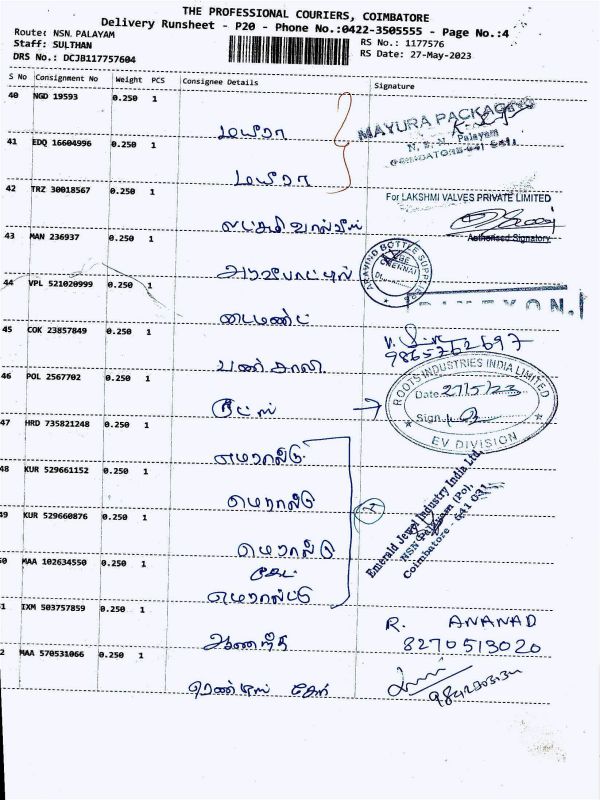 THE PROFESSIONAL COURIERS, COIMBATORE
Delivery Runsheet - P20 - Phone No.:0422-3505555 - Page No.:4
Route: NSN PALAYAM
Staff: SULTHAN
DRS No.: DCJB117757604
RS No.: 1177576
RS Date: 27-May-2023
S No Consignment No Weight PCS Consignee Details Signature
40 NGD 19593 0.250 1
மயூரா
MAYURA PACKAGING
N. S. N. Palayam
COIMBATORE-641
41 EDQ 16604996 0.250 1
மயூரா
42 TRZ 30018567 0.250 1
லட்சுமி வால்வ்ஸ்
For LAKSHMI VALVES PRIVATE LIMITED
Authorised Signatory
43 MAN 236937 0.250 1
ARAVIND BOTTLE SUPPLIERS
44 VPL 521020999 0.250 1
டைமண்ட்
45 COK 23857849 0.250 1
46 POL 2567702 0.250 1
ரூட்ஸ்
ROOTS INDUSTRIES INDIA LIMITED
Date 27/5/23
Sign.
EV DIVISION
47 HRD 735821248 0.250 1
எமரால்டு
48 KUR 529661152 0.250 1
எமரால்டு
Emerald Jewel Industry India Ltd,
NSN Palayam (Po),
Coimbatore - 641 031
49 KUR 529660876 0.250 1
எமரால்டு
50 MAA 102634550 0.250 1
எமரால்டு
51 IXM 503757859 0.250 1
ஆனந்த்
R. ANANAD
8270513020
52 MAA 570531066 0.250 1